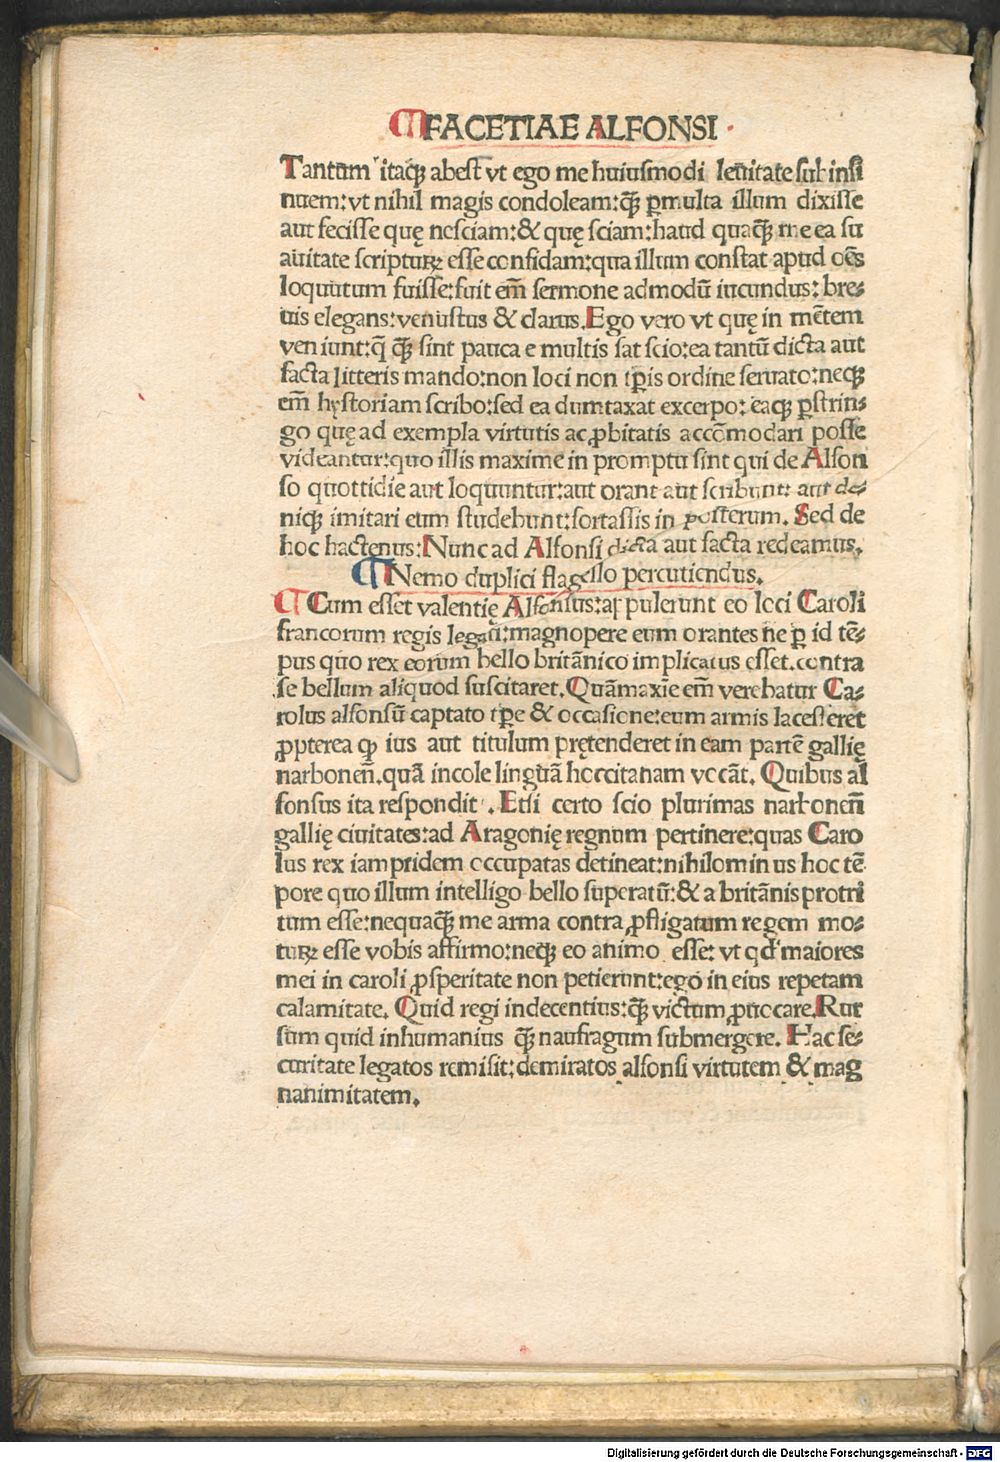 FACETIAE ALFONSI
Tantum itaq̃ abest vt ego me huiusmodi leuitate subinsi
nuem:vt nihil magis condoleam:q̃ ꝑmulta illum dixisse
aut fecisse quę nesciam:& quę sciam:haud quaq̃ me ea su
auitate scripturꝝ esse confidam:qua illum constat apud oẽs
loquutum fuisse:fuit em̃ sermone admodũ iucundus:bre⸗
uis elegans:venustus & clarus.Ego vero vt quę in mẽtem
veniunt:q̃ q̃ sint pauca e multis sat scio:ea tantũ dicta aut
facta litteris mando:non loci non tꝑis ordine seruato:neqꝫ
em̃ hystoriam scribo:sed ea dumtaxat excerpo:eaqꝫ ꝑstrin⸗
go quę ad exempla virtutis ac ꝓbitatis accõmodari posse
videantur:quo illis maxime in promptu sint qui de Alfon
so quottidie aut loquuntur:aut orant aut scribunt: aut de⸗
niqꝫ imitari eum studebunt:fortassis in posterum. Sed de
hoc hactenus:Nunc ad Alfonsi dicta aut facta redeamus.
Nemo duplici flagello percutiendus.
Cum esset valentię Alfonsus:appulerunt eo loci Caroli
francorum regis legati:magnopere eum orantes ne ꝑ id tẽ⸗
pus quo rex eorum bello britãnico implicatus esset.contra
se bellum aliquod suscitaret.Quãmaxĩe em̃ verebatur Ca⸗
rolus alfonsũ captato tꝑe & occasione:eum armis lacesseret
ꝓpterea ꝙ ius aut titulum prętenderet in eam partẽ gallię
narbonen̄.quã incole linguã hoccitanam vocãt. Quibus al
fonsus ita respondit. Etsi certo scio plurimas narbonen̄
gallię ciuitates:ad Aragonię regnum pertinere:quas Caro
lus rex iampridem occupatas detineat:nihilominus hoc tẽ
pore quo illum intelligo bello superatũ:& a britãnis protri
tum esse:nequaq̃ me arma contra ꝓfligatum regem mo⸗
turꝝ esse vobis affirmo:neqꝫ eo animo esse: vt qd' maiores
mei in caroli ꝓsperitate non petierunt:ego in eius repetam
calamitate. Quid regi indecentius:q̃ victum ꝓuocare.Rur
sum quid inhumanius q̃ naufragum submergere. Hac se⸗
curitate legatos remisit:demiratos alfonsi virtutem & mag
nanimitatem.
Digitalisierung gefördert durch die Deutsche Forschungsgemeinschaft - DFG